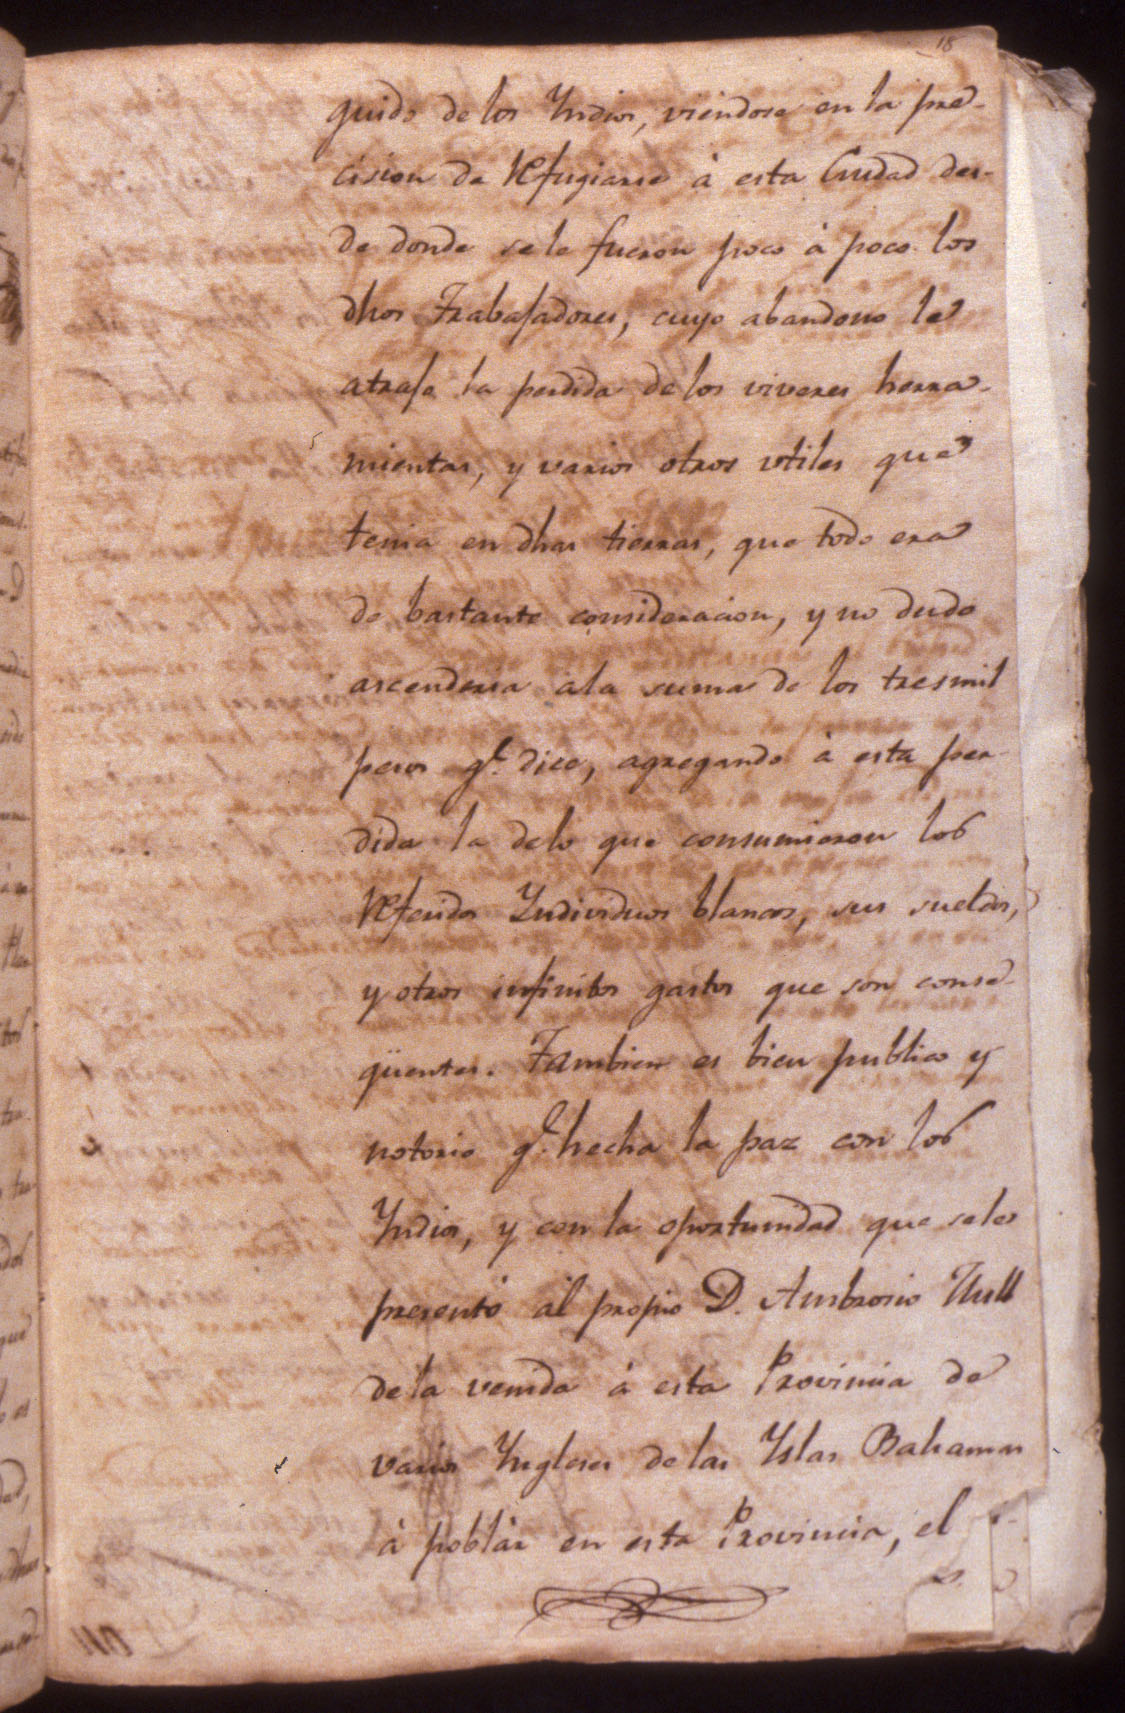 18
guido de los Yndios, viendose en la pre-
cision de Refugiarse à esta Ciudad des-
de donde se le fueron poco à poco los
dhos Trabajadores, cuyo abandono le
atrajo la perdida de los viveres herra-
mientas, y varios otros utiles que
tenia en dhas tierras, que todo era
de bastante consideracion, y no dudo
ascenderia a la suma de los tresmil
pesos q.e dice, agregando à esta per-
dida la delo que consumieron los
Referidos Yndividuos blancos, sus sueldos,
y otros infinitos gastos que son conse-
qüentes. Tambien es bien publico y
notorio q.e hecha la paz con los
Yndios, y con la oportunidad que se les
presentó al propio D. Ambrosio Hull
dela venida à esta Provincia de
varios Yngleses de las Yslas Bahamas
à poblàr en esta Provincia, el